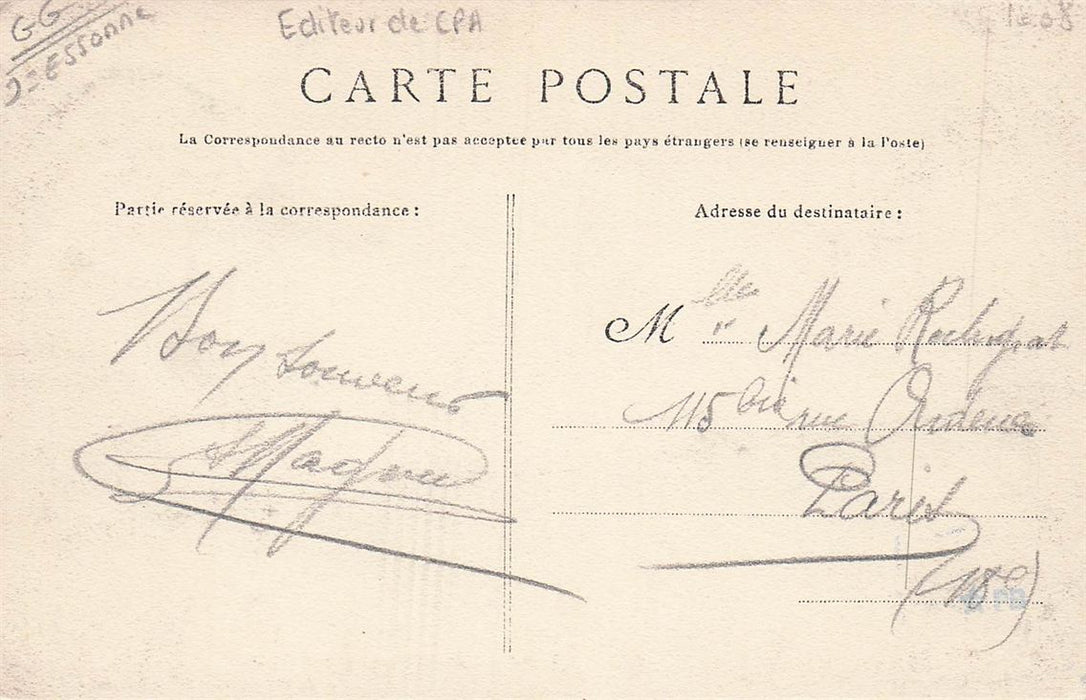 GG
Essonne
Editeur de CPA
CARTE POSTALE
La Correspondance au recto n'est pas acceptée par tous les pays étrangers (se renseigner à la Poste)
Partie réservée à la correspondance :
Bon Souvenir
Adresse du destinataire :
Mlle Marie
115 bis rue Ordener
Paris
(18e)